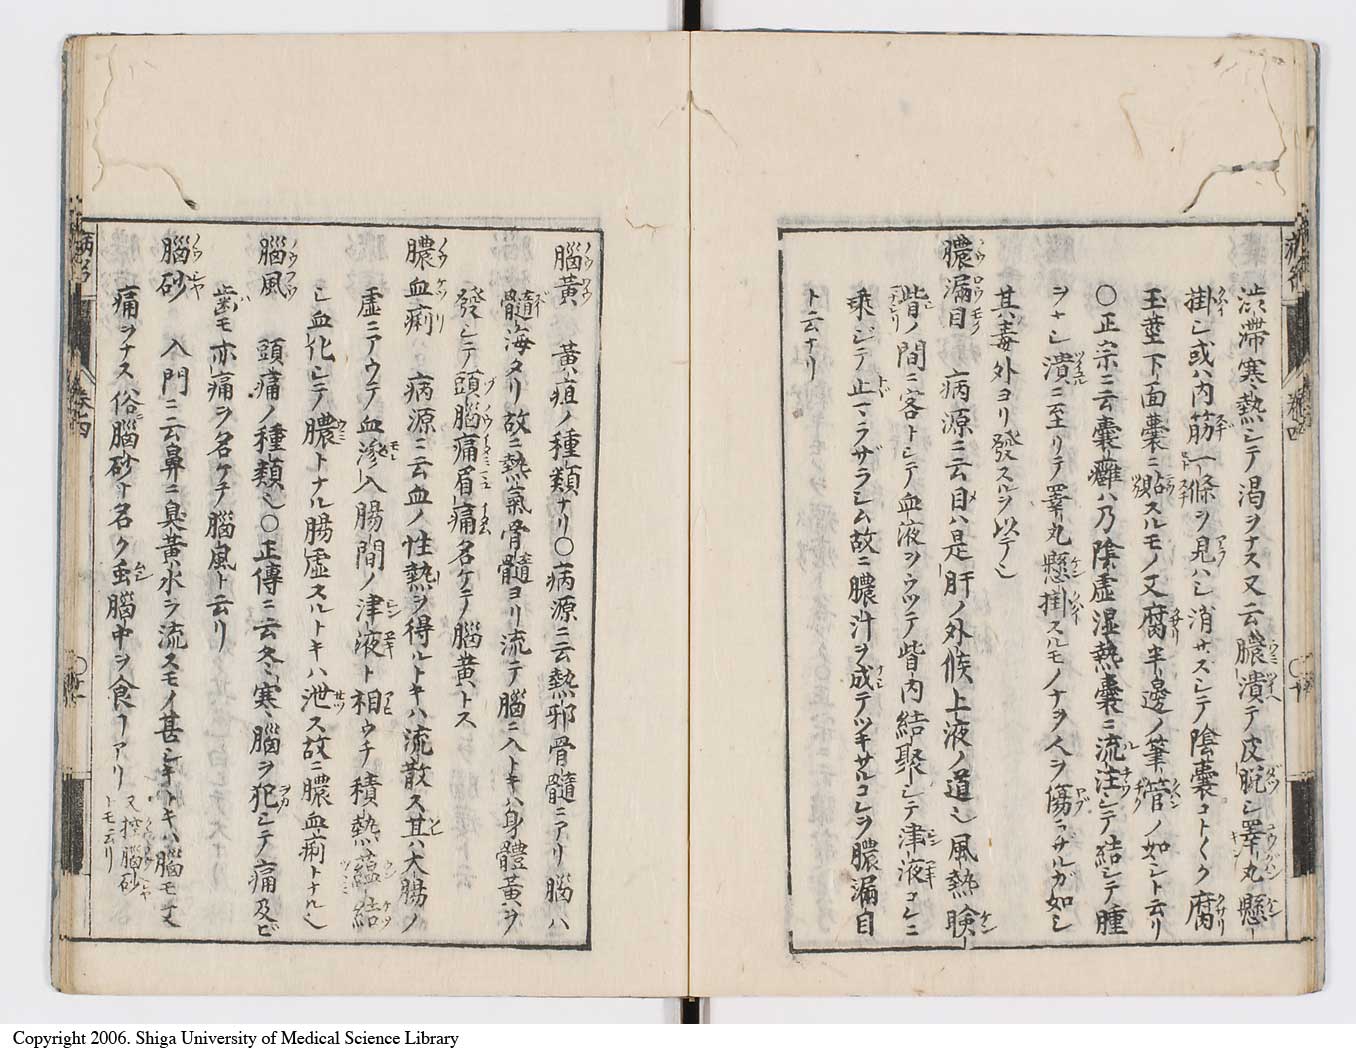 渋滞寒熱シテ渇ヲナス又云膿潰テ皮脱シ睪丸懸
掛シ或ハ内筋一條ヲ見ハシ消サスシテ陰嚢コトヽク腐
玉莖下面嚢ニ貼スルモノ又腐半邊ノ筆管ノ如シト云リ
○正宗ニ云嚢癰ハ乃陰虚湿熱嚢ニ流注シテ結シテ腫
ヲナシ潰ニ至リテ睪丸懸掛スルモノナヲ人ヲ傷ラザルガ如シ
其毒外ヨリ發スルヲ以テ也
膿漏目 病源ニ云目ハ是肝ノ外候上液ノ道也風熱瞼
眥ノ間ニ客トシテ血液ヲウツテ眥内結聚シテ津液コレニ
乗ジテ止マラザラシム故ニ膿汁ヲ成テツキサルコレヲ膿漏目
ト云ナリ
腦黃 黃疸ノ種類ナリ○病源ニ云熱邪骨髓ニアリ腦ハ
髓海タリ故ニ熱氣骨髓ヨリ流テ腦ニ入トキハ身體黃ヲ
發シテ頭腦痛眉痛名ケテ腦黄トス
膿血痢 病源ニ云血ノ性熱ヲ得ルトキハ流散ス其ハ大腸ノ
虚ニアウテ血滲入腸間ノ津液ト相ウチ積熱蘊結
シ血化シテ膿トナル腸虚スルトキハ泄ス故ニ膿血痢トナル也
腦風 頭痛ノ種類也○正傳ニ云冬寒腦ヲ犯シテ痛及ビ
歯モ亦痛ヲ名ケテ腦風ト云リ
腦砂 入門ニ云鼻ニ臭黃水ヲ流スモノ甚シキトキハ腦モ又
痛ヲナス俗腦砂ト名ク虫腦中ヲ食フアリ 又控腦砂トモ云リ
病名
巻四